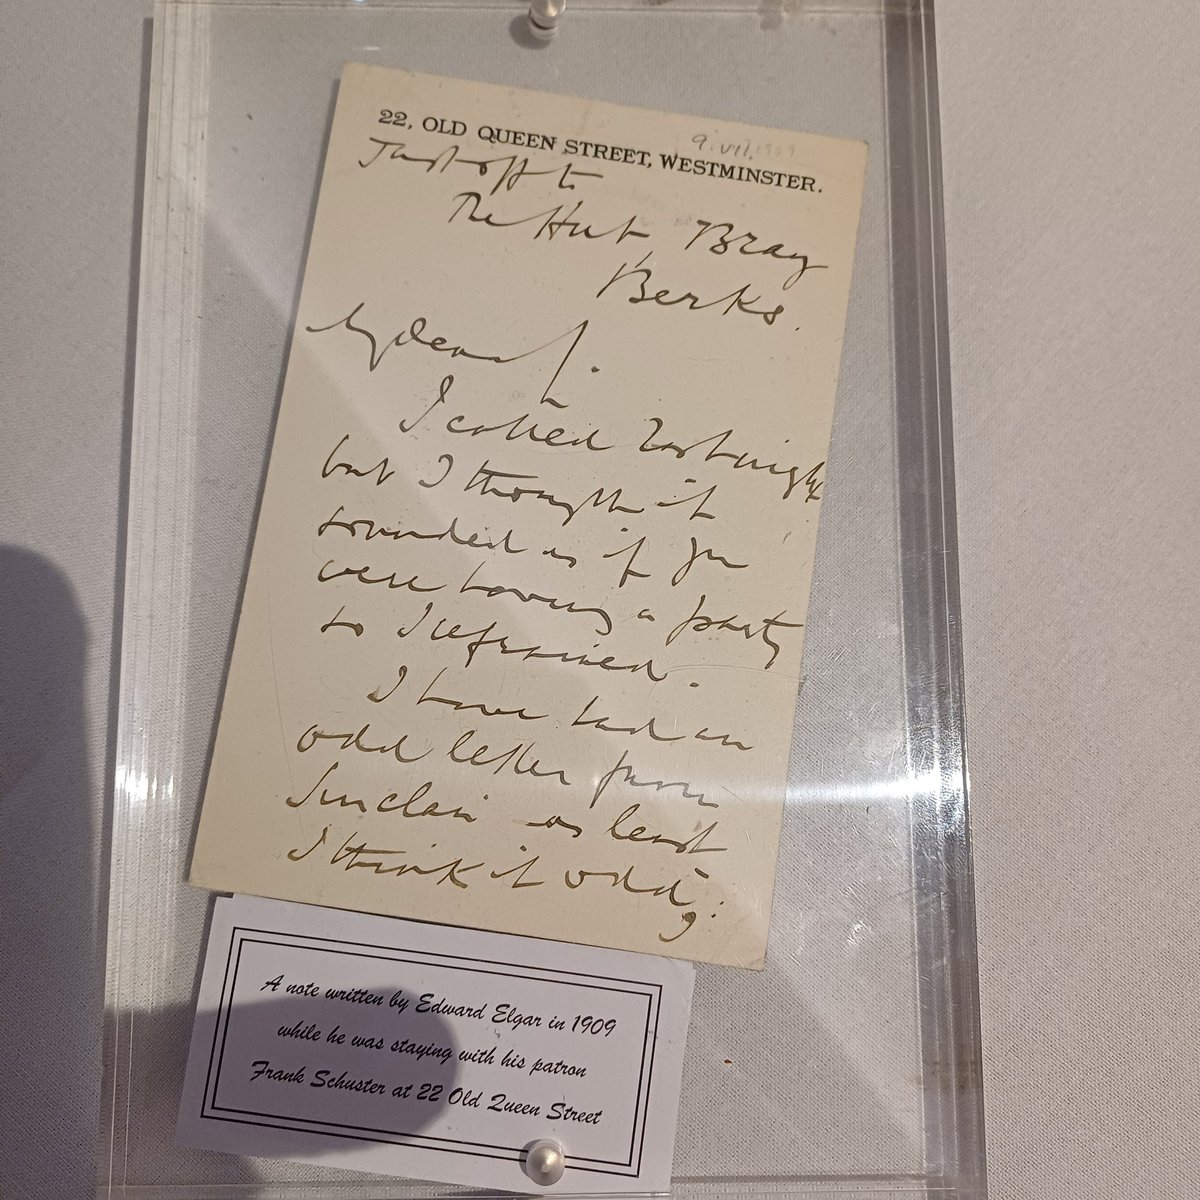 22, OLD QUEEN STREET, WESTMINSTER.
9.VII.1909
Just off to
The Hut, Bray
Berks.
My dear
I called last night
but I thought it
sounded as if you
were having a party
so I refrained.
I have had an
odd letter from
Sinclair or least
I think it odd;
A note written by Edward Elgar in 1909
while he was staying with his patron
Frank Schuster at 22 Old Queen Street